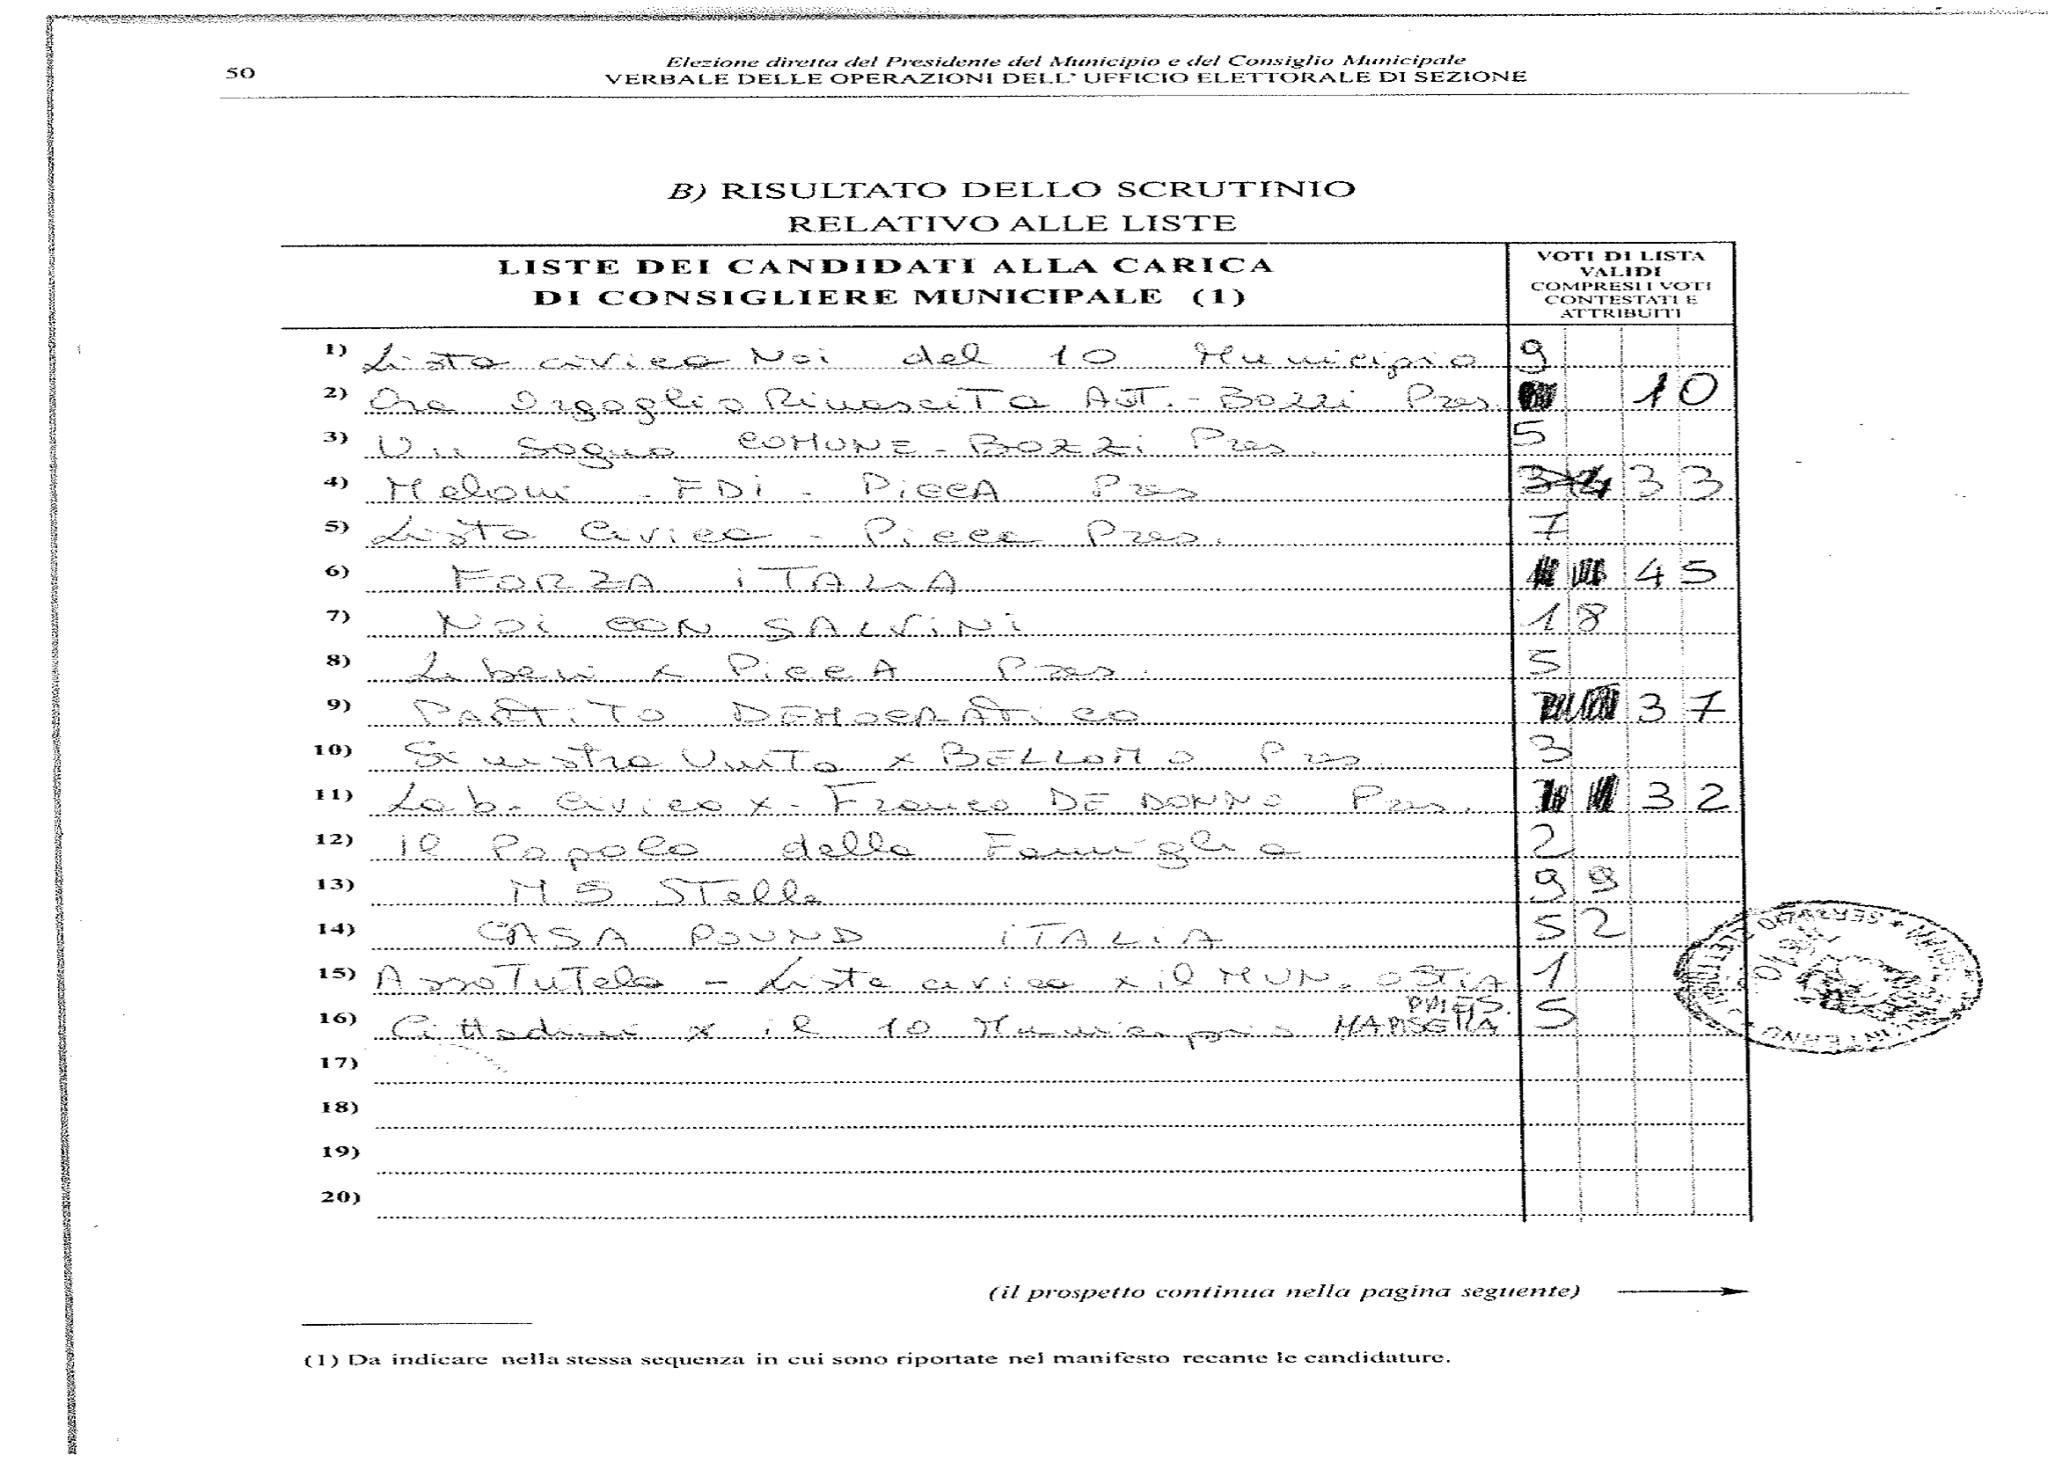 50
Elezione diretta del Presidente del Municipio e del Consiglio Municipale
VERBALE DELLE OPERAZIONI DELL' UFFICIO ELETTORALE DI SEZIONE
B) RISULTATO DELLO SCRUTINIO
RELATIVO ALLE LISTE
LISTE DEI CANDIDATI ALLA CARICA
DI CONSIGLIERE MUNICIPALE (1)
VOTI DI LISTA
VALIDI
COMPRESI I VOTI
CONTESTATI E
ATTRIBUITI
1) Lista civica Noi del 10 Municipio 9
2) Ora Orgoglio Rinascita Aut. - Bozzi Pres. 10
3) Un Sogno COMUNE - BOZZi Pres. 5
4) Meloni - FDi - PiccA Pres 33
5) Lista Civica - Picca Pres. 7
6) FORZA iTALiA 45
7) Noi CON SALViNi 18
8) Liberi x PiccA Pres. 5
9) PARTiTO DEMOCRATiCO 37
10) Sinistra Unita x BELLOMO Pres. 3
11) Lab. Civico x - Franco DE DONNO Pres. 32
12) il Popolo della Famiglia 2
13) M. 5 Stelle 99
14) CASA POUND iTALiA 52
15) AssoTutela - Lista civica x il MUN. OSTiA 1
16) Cittadini x il 10 Municipio MARSELLA PRES. 5
17)
18)
19)
20)
(il prospetto continua nella pagina seguente)
(1) Da indicare nella stessa sequenza in cui sono riportate nel manifesto recante le candidature.